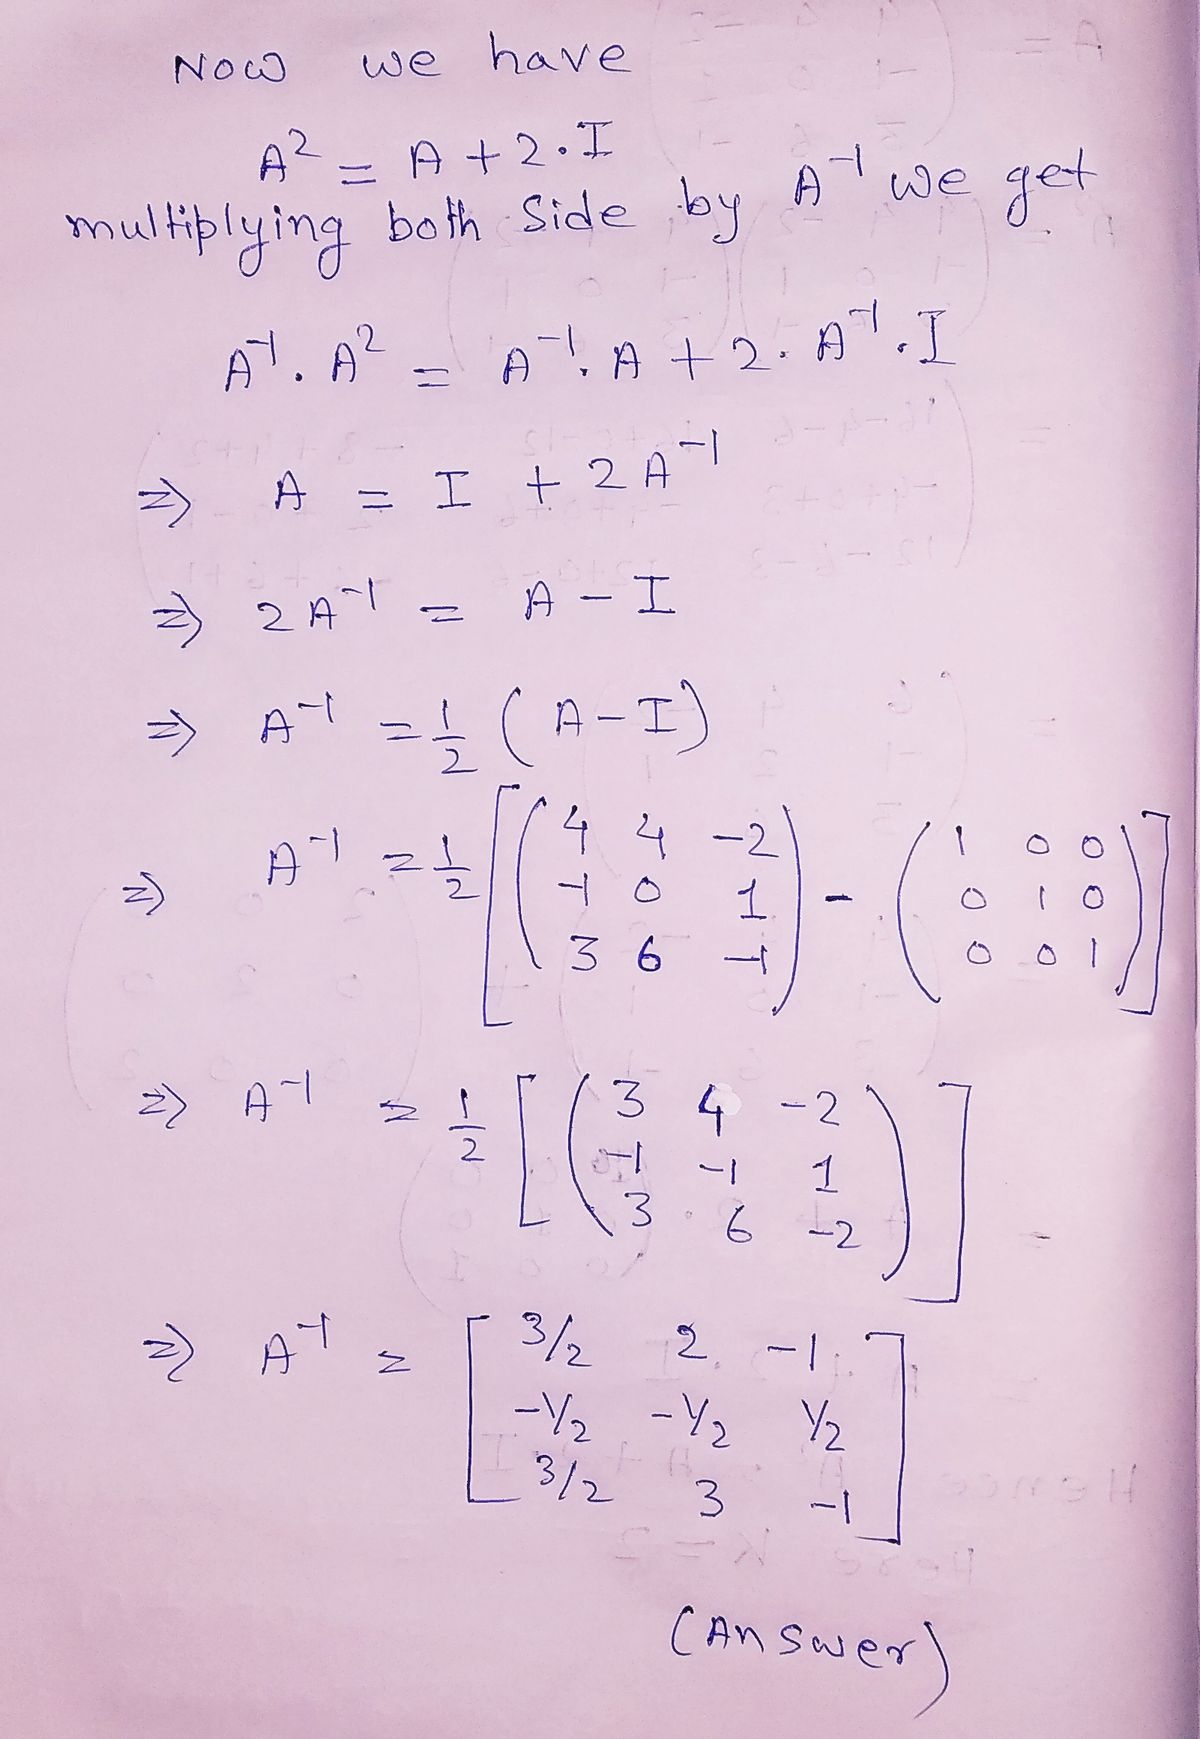 Now we have
A² = A + 2·I
multiplying both Side by A⁻¹ we get
A⁻¹. A² = A⁻¹. A + 2. A⁻¹.I
⇒ A = I + 2A⁻¹
⇒ 2A⁻¹ = A - I
⇒ A⁻¹ = 1/2 ( A - I )
⇒ A⁻¹ = 1/2 [ ( 4 4 -2
-1 0 1
3 6 -1 ) - ( 1 0 0
0 1 0
0 0 1 ) ]
⇒ A⁻¹ = 1/2 [ ( 3 4 -2
-1 -1 1
3 6 -2 ) ]
⇒ A⁻¹ = [ 3/2 2 -1
-1/2 -1/2 1/2
3/2 3 -1 ]
(Answer)